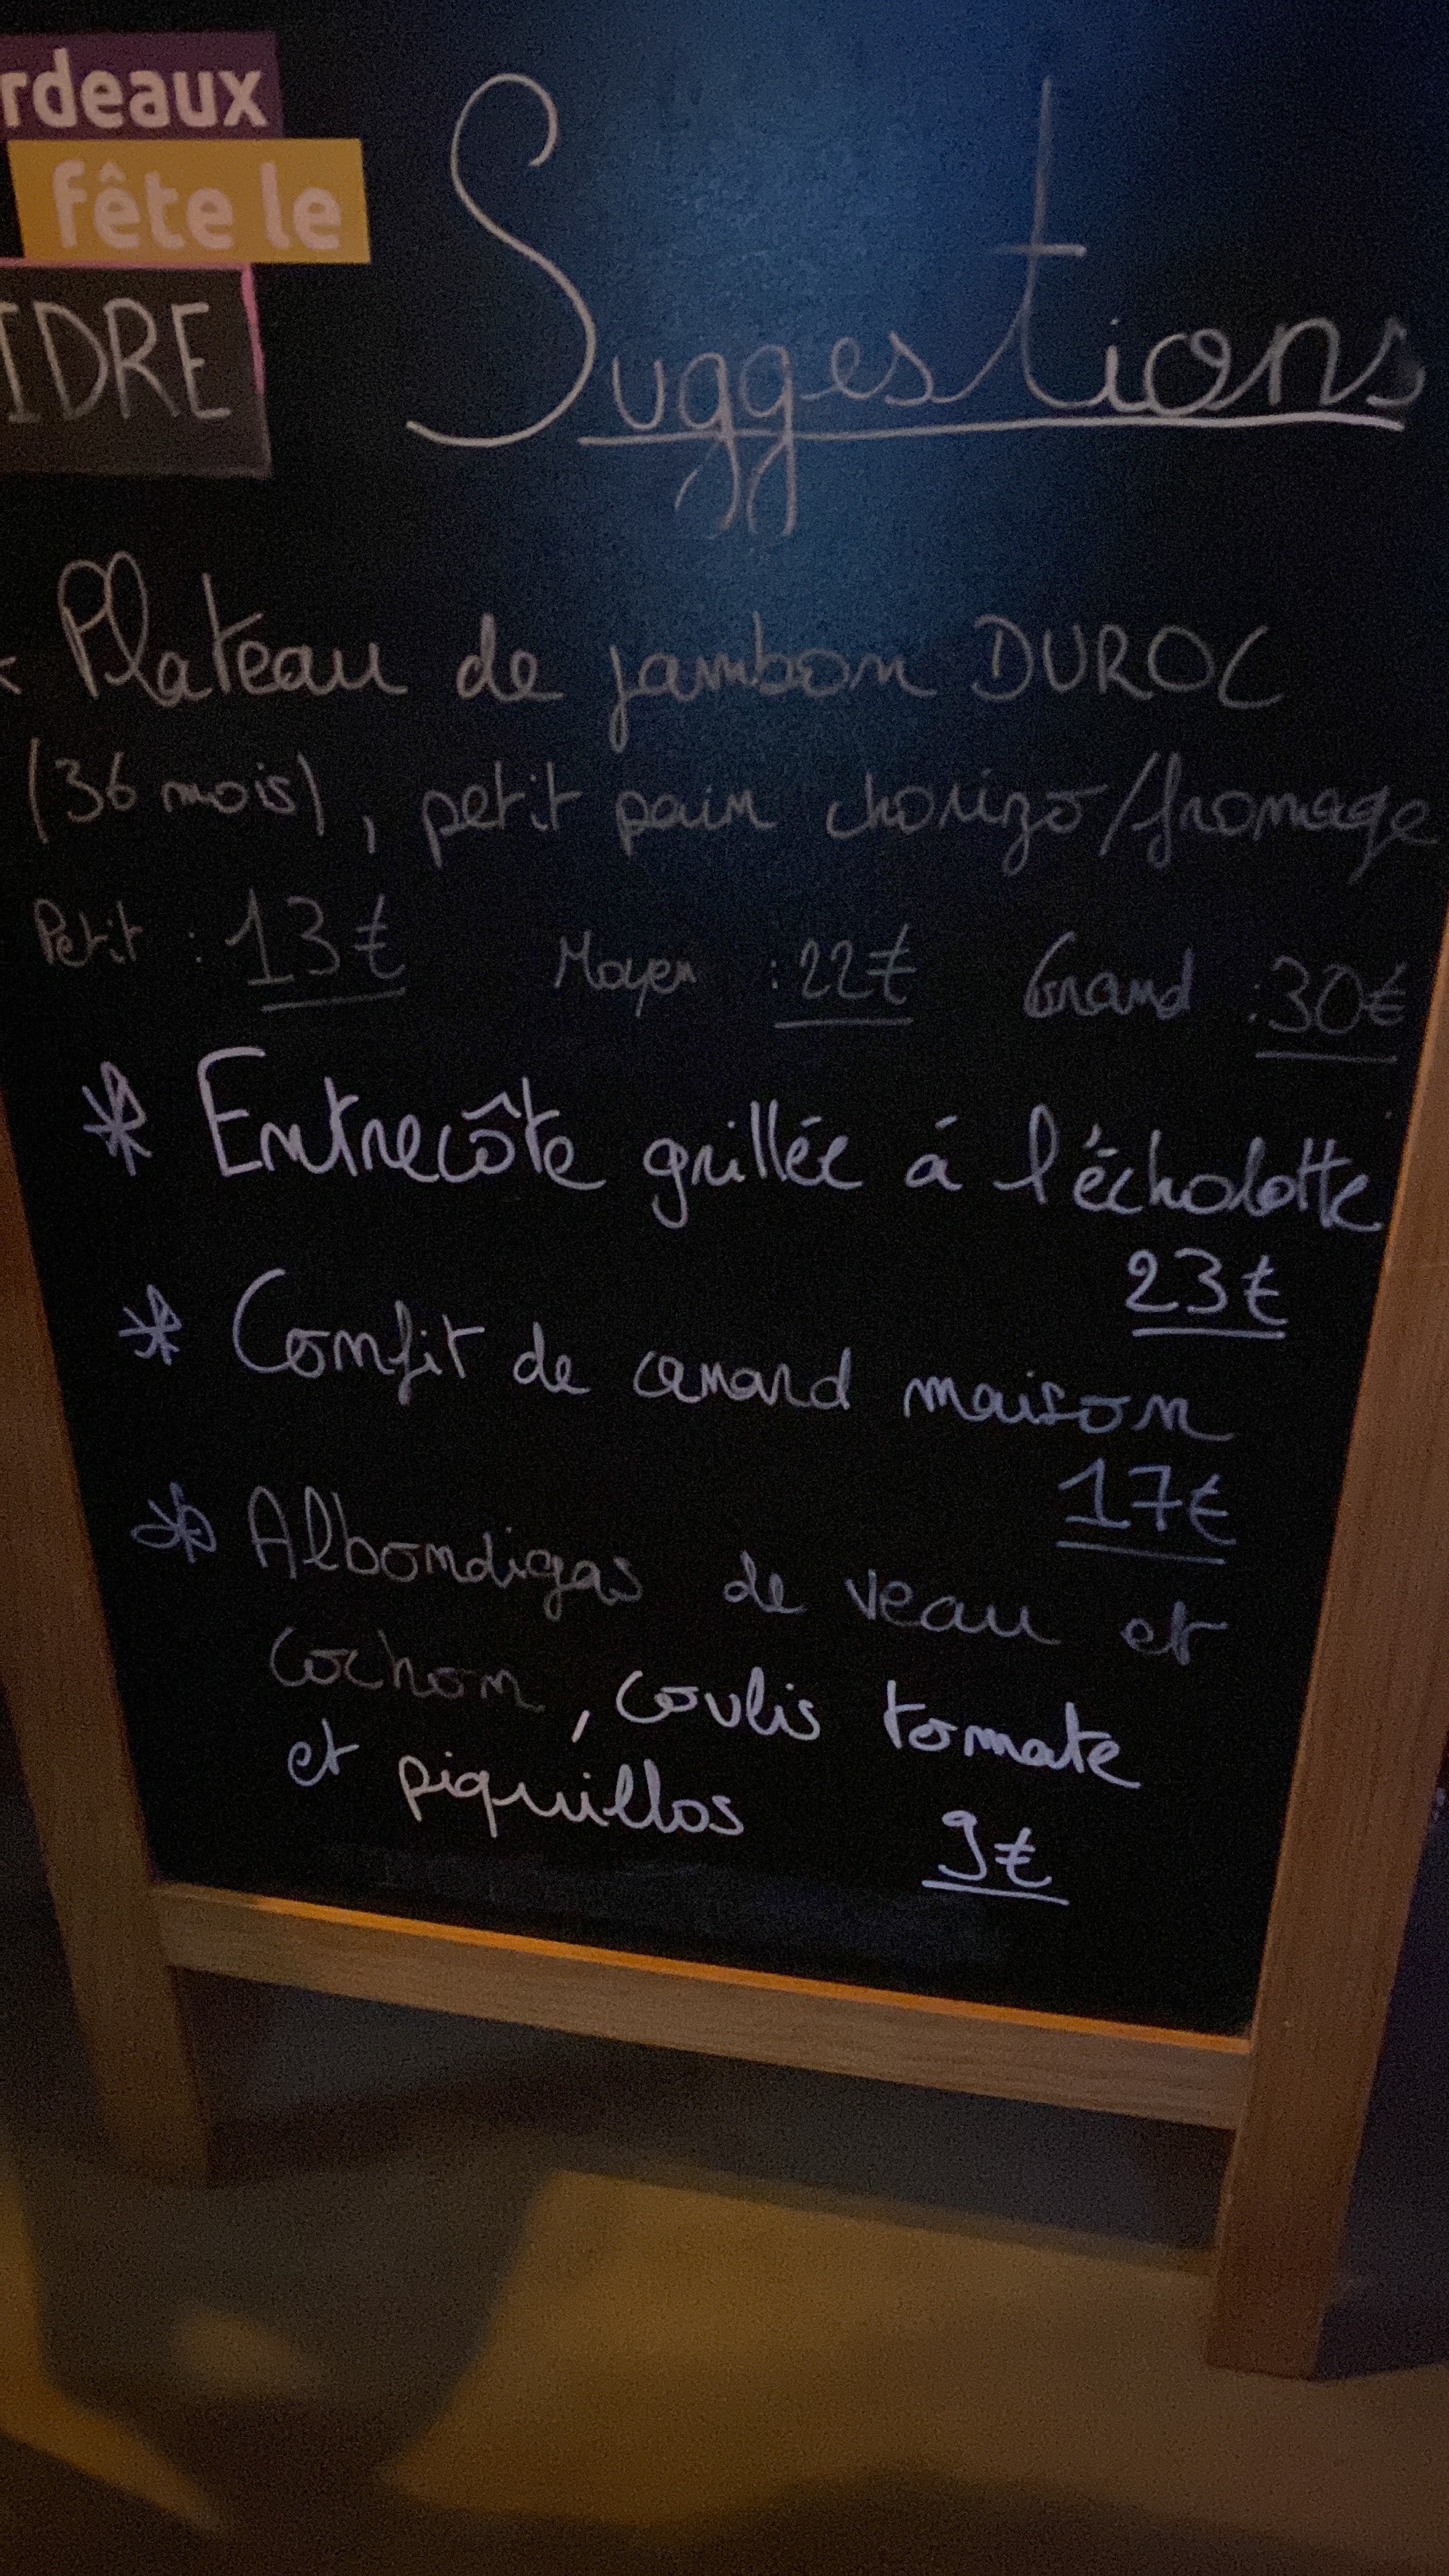 rdeaux
fête le
IDRE
Suggestions
Plateau de jambon DUROC
(36 mois), petit pain chorizo/fromage
Petit : 13€ Moyen : 22€ Grand : 30€
* Entrecôte grillée á l'écholotte
23€
* Confit de canard maison
17€
* Albondigas de veau et
Cochon, coulis tomate
et piquillos 9€